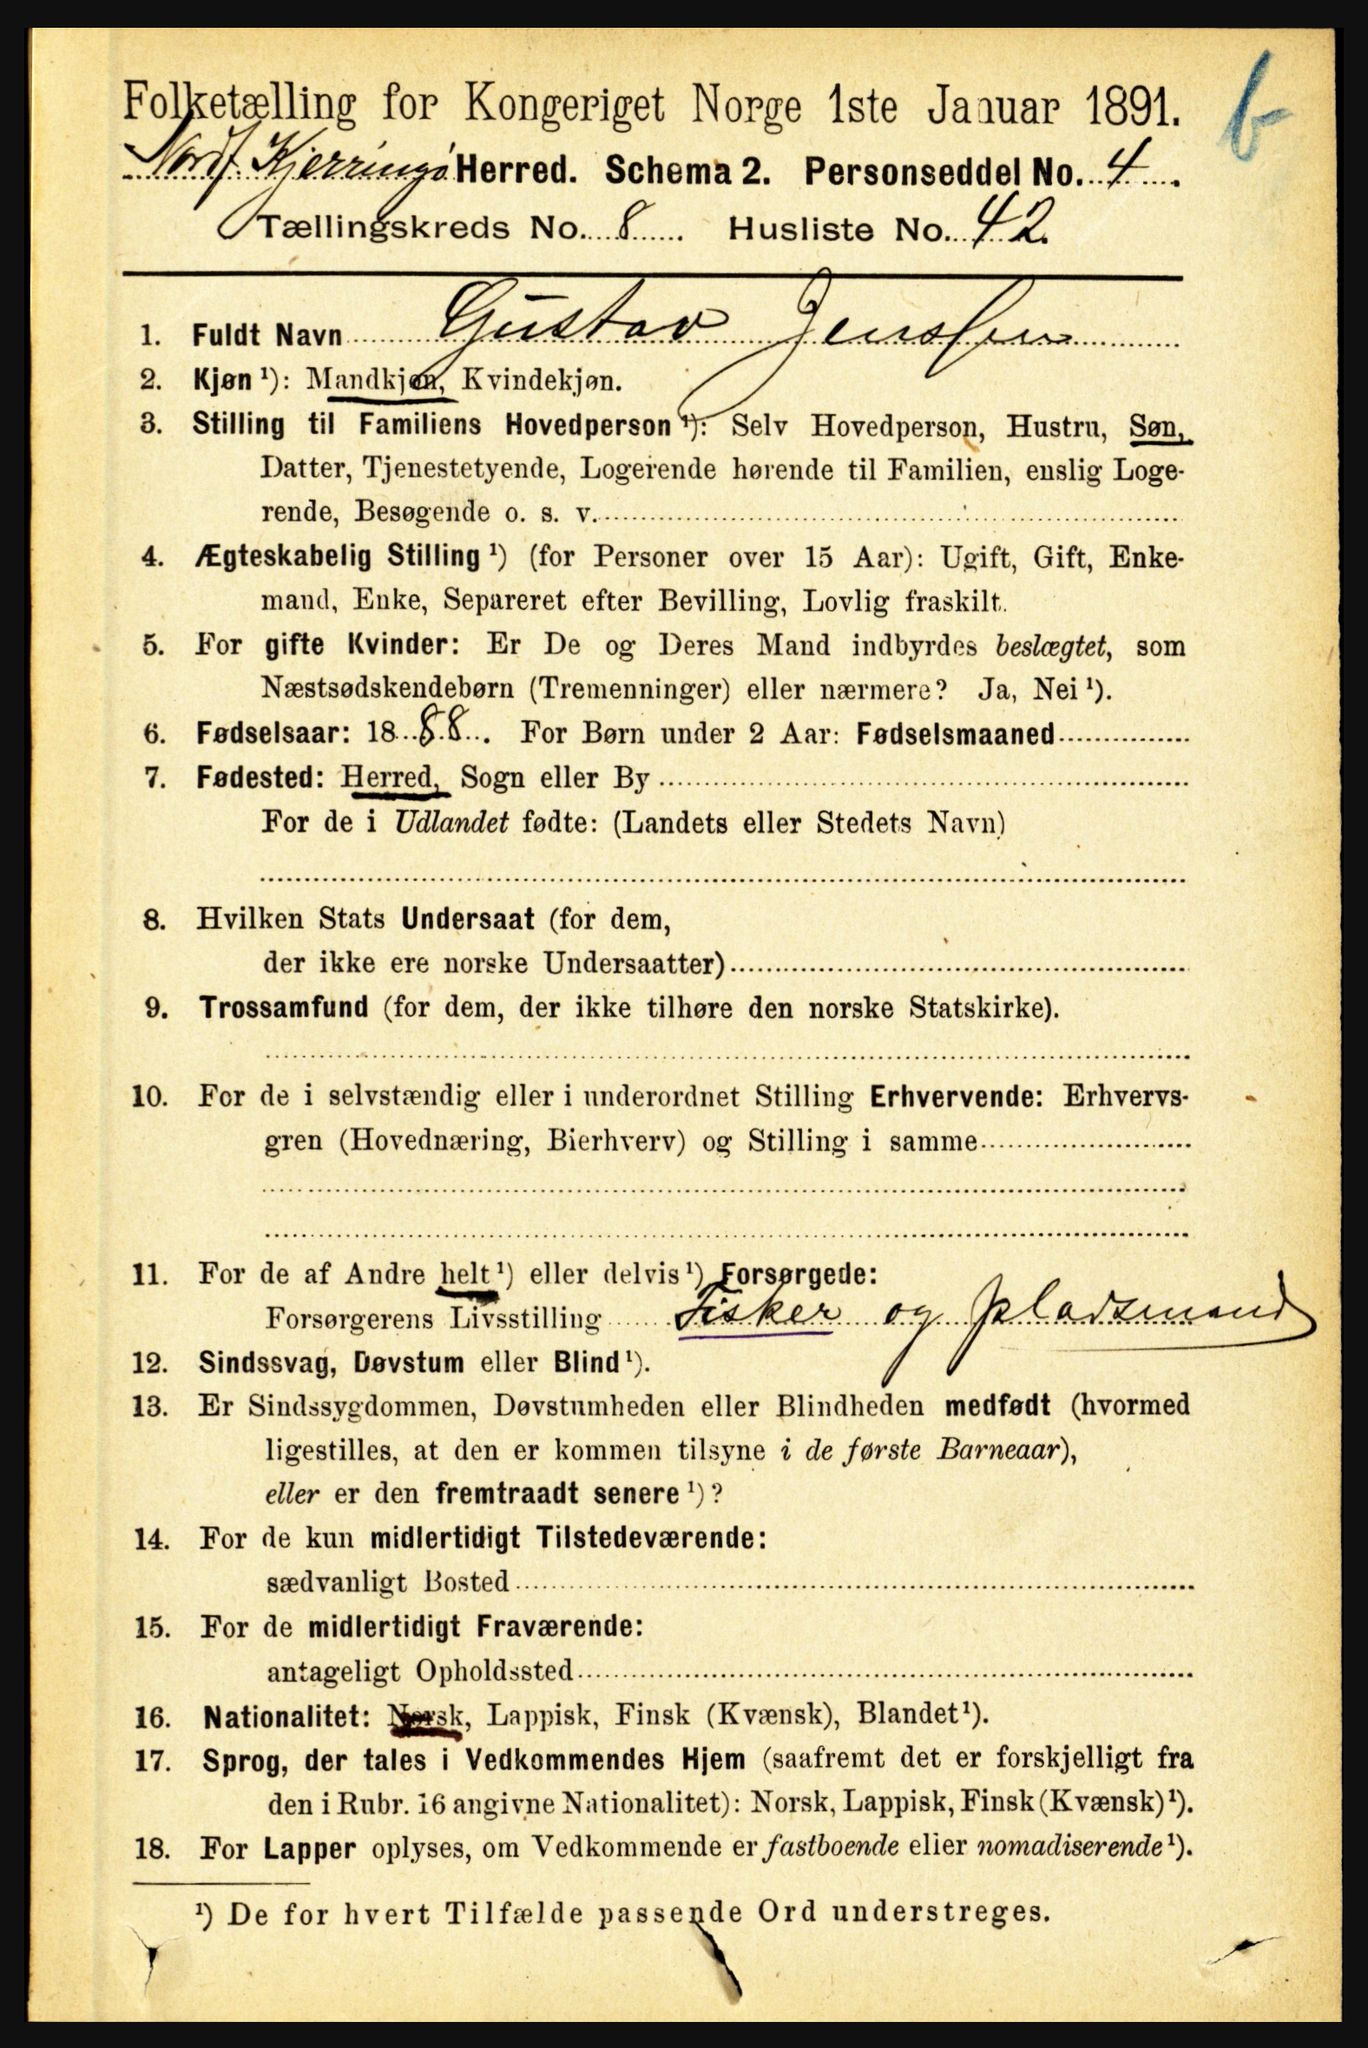 Folketælling for Kongeriget Norge 1ste Januar 1891.
b
Nordf. Kjerringø Herred. Schema 2. Personseddel No. 4.
Tællingskreds No. 8. Husliste No. 42.
1. Fuldt Navn Gustav Jenssen
2. Kjøn ¹): Mandkjøn, Kvindekjøn.
3. Stilling til Familiens Hovedperson ¹): Selv Hovedperson, Hustru, Søn,
Datter, Tjenestetyende, Logerende hørende til Familien, enslig Loge-
rende, Besøgende o. s. v.
4. Ægteskabelig Stilling ¹) (for Personer over 15 Aar): Ugift, Gift, Enke-
mand, Enke, Separeret efter Bevilling, Lovlig fraskilt.
5. For gifte Kvinder: Er De og Deres Mand indbyrdes beslægtet, som
Næstsødskendebørn (Tremenninger) eller nærmere? Ja, Nei ¹).
6. Fødselsaar: 1888. For Børn under 2 Aar: Fødselsmaaned
7. Fødested: Herred, Sogn eller By
For de i Udlandet fødte: (Landets eller Stedets Navn)
8. Hvilken Stats Undersaat (for dem,
der ikke ere norske Undersaatter)
9. Trossamfund (for dem, der ikke tilhøre den norske Statskirke).
10. For de i selvstændig eller i underordnet Stilling Erhvervende: Erhvervs-
gren (Hovednæring, Bierhverv) og Stilling i samme
11. For de af Andre helt ¹) eller delvis ¹) Forsørgede:
Forsørgerens Livsstilling Fisker og pladsmand
12. Sindssvag, Døvstum eller Blind ¹).
13. Er Sindssygdommen, Døvstumheden eller Blindheden medfødt (hvormed
ligestilles, at den er kommen tilsyne i de første Barneaar),
eller er den fremtraadt senere ¹)?
14. For de kun midlertidigt Tilstedeværende:
sædvanligt Bosted
15. For de midlertidigt Fraværende:
antageligt Opholdssted
16. Nationalitet: Norsk, Lappisk, Finsk (Kvænsk), Blandet ¹).
17. Sprog, der tales i Vedkommendes Hjem (saafremt det er forskjelligt fra
den i Rubr. 16 angivne Nationalitet): Norsk, Lappisk, Finsk (Kvænsk) ¹).
18. For Lapper oplyses, om Vedkommende er fastboende eller nomadiserende ¹).
¹) De for hvert Tilfælde passende Ord understreges.